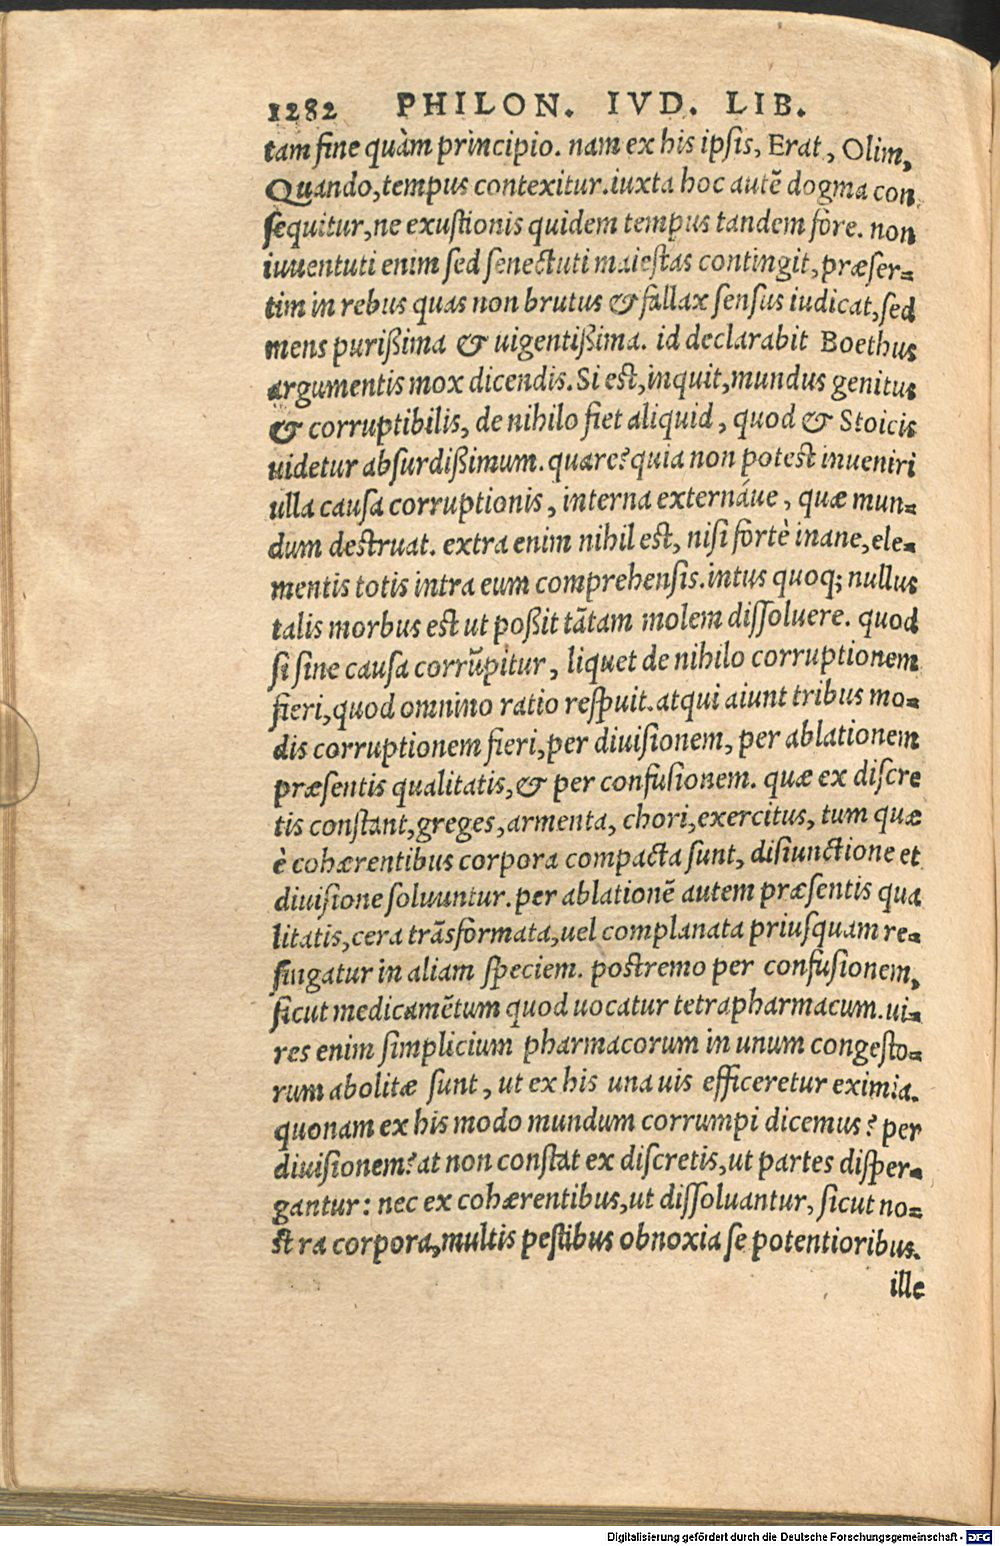 1282 PHILON. IVD. LIB.
tam fine quàm principio. nam ex his ipsis, Erat, Olim,
Quando, tempus contexitur. iuxta hoc autē dogma con
sequitur, ne exustionis quidem tempus tandem fore. non
iuuentuti enim sed senectuti maiestas contingit, præser-
tim in rebus quas non brutus & fallax sensus iudicat, sed
mens purißima & uigentißima. id declarabit Boethus
argumentis mox dicendis. Si est, inquit, mundus genitus
& corruptibilis, de nihilo fiet aliquid, quod & Stoicis
uidetur absurdißimum. quare? quia non potest inueniri
ulla causa corruptionis, interna externáue, quæ mun-
dum destruat. extra enim nihil est, nisi fortè inane, ele-
mentis totis intra eum comprehensis. intus quoq; nullus
talis morbus est ut poßit tātam molem dissoluere. quod
si sine causa corrūpitur, liquet de nihilo corruptionem
fieri, quod omnino ratio respuit. atqui aiunt tribus mo-
dis corruptionem fieri, per diuisionem, per ablationem
præsentis qualitatis, & per confusionem. quæ ex discre
tis constant, greges, armenta, chori, exercitus, tum quæ
è cohærentibus corpora compacta sunt, disiunctione et
diuisione soluuntur. per ablationē autem præsentis qua
litatis, cera trāsformata, uel complanata priusquam re-
fingatur in aliam speciem. postremo per confusionem,
sicut medicamētum quod uocatur tetrapharmacum. ui-
res enim simplicium pharmacorum in unum congesto-
rum abolitæ sunt, ut ex his una uis efficeretur eximia.
quonam ex his modo mundum corrumpi dicemus? per
diuisionem? at non constat ex discretis, ut partes disper-
gantur: nec ex cohærentibus, ut dissoluantur, sicut no-
stra corpora, multis pestibus obnoxia se potentioribus.
ille
Digitalisierung gefördert durch die Deutsche Forschungsgemeinschaft - DFG